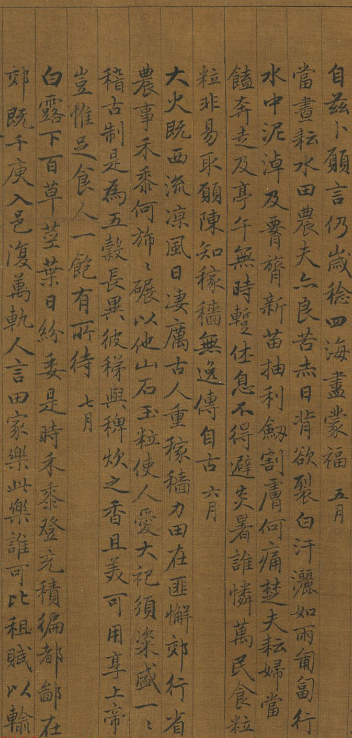 自茲卜願言仍歲稔四海盡蒙福 五月
當晝耘水田農夫亦良苦赤日背欲裂白汗灑如雨匍匐行
水中泥淖及臀膂新苗抽利劒割膚何痛楚夫耘婦當
饁奔走及亭午無時暫休息不得避炎暑誰憐萬民食粒
粒非易取願陳知稼穡無逸傳自古 六月
大火既西流凉風日凄厲古人重稼穡力田在匪懈郊行省
農事禾黍何旆〻碾以他山石玉粒使人愛大祀須粢盛一〻
稽古制是為五穀長異彼稊與稗炊之香且美可用享上帝
豈惟足食人一飽有所待 七月
白露下百草莖葉日紛委是時禾黍登充積徧都鄙在
郊既千庾入邑復萬軌人言田家樂此樂誰可比租賦以輸